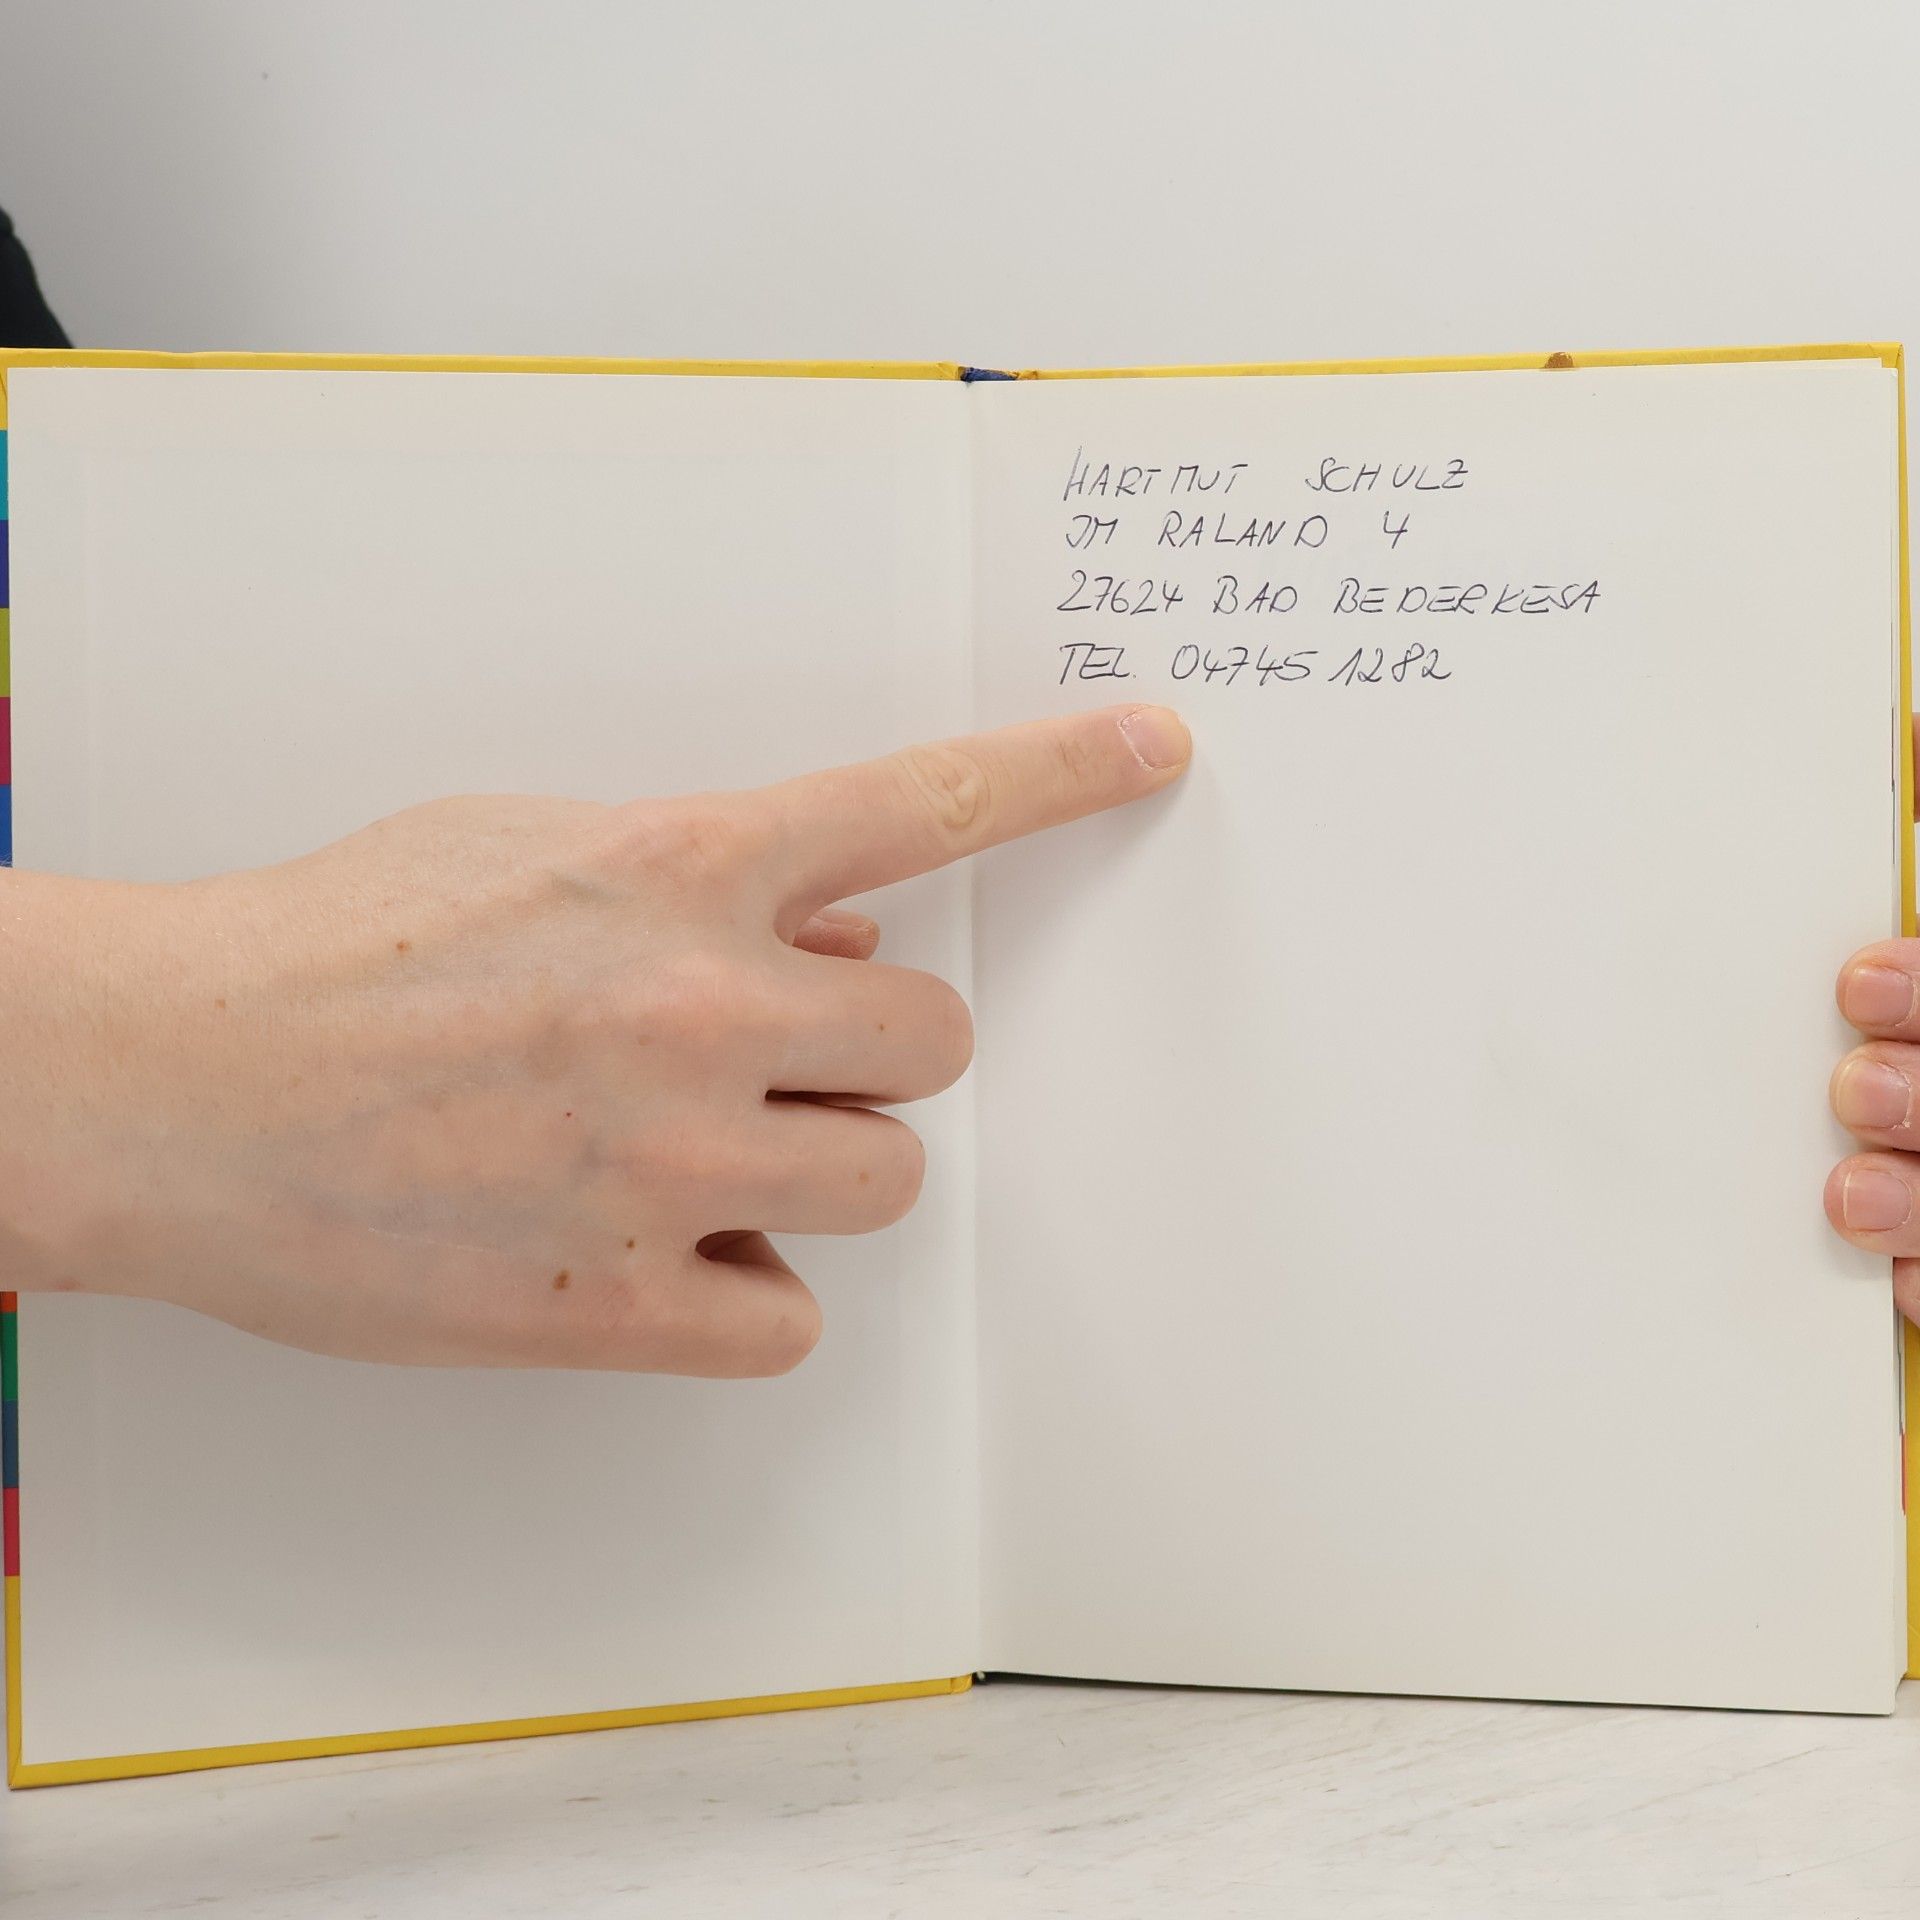 HARTMUT SCHULZ
IM RALAND 4
27624 BAD BEDERKESA
TEL. 04745 1282